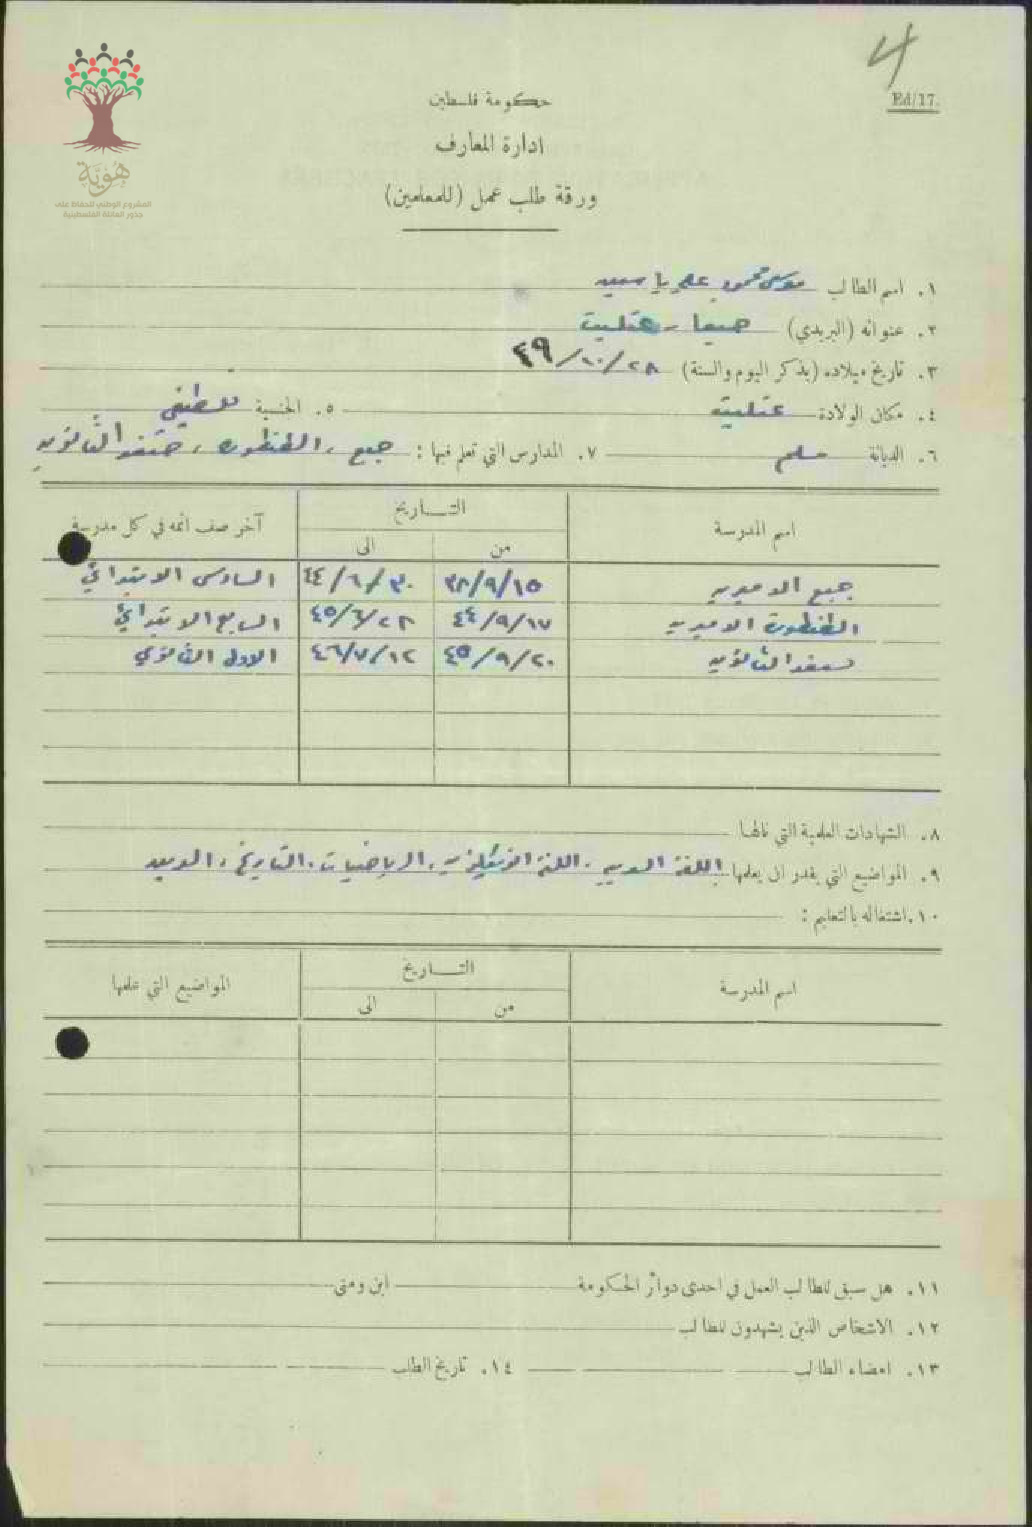 4
Ed/17.
حكومة فلسطين
ادارة المعارف
ورقة طلب عمل (للمعلمين)
هُوِيَّة
المشروع الوطني للحفاظ على
جذور العائلة الفلسطينية
١. اسم الطالب موسى محمود علي ياسين
٢. عنوانه (البريدي) حيفا - عتليت
٣. تاريخ ميلاده (بذكر اليوم والسنة) ٢٨/١٠/٢٩
٤. مكان الولادة عتليت ٥. الجنسية فلسطيني
٦. الديانة مسلم ٧. المدارس التي تعلم فيها : جبع ، الطنطوره ، صفد الثانويه
اسم المدرسة التـاريخ آخر صف اتمه في كل مدرسة
من الى
جبع الاميريه ٣٨/٩/١٥ ٤٤/٦/٣٠ السادس الابتدائي
الطنطورة الاميريه ٤٤/٩/١٧ ٤٥/٦/٢٣ السابع الابتدائي
صفد الثانويه ٤٥/٩/٢٠ ٤٦/٧/١٢ الاول الثانوي
٨. الشهادات العلمية التي نالها
٩. المواضيع التي يقدر ان يعلمها اللغة العربيه ، اللغة الانكليزيه ، الرياضيات ، التاريخ ،
١٠. اشتغاله بالتعليم :
اسم المدرسة التـاريخ المواضيع التي علمها
من الى
١١. هل سبق للطالب العمل في احدى دوائر الحكومة اين ومتى
١٢. الاشخاص الذين يشهدون للطالب
١٣. امضاء الطالب ١٤. تاريخ الطلب